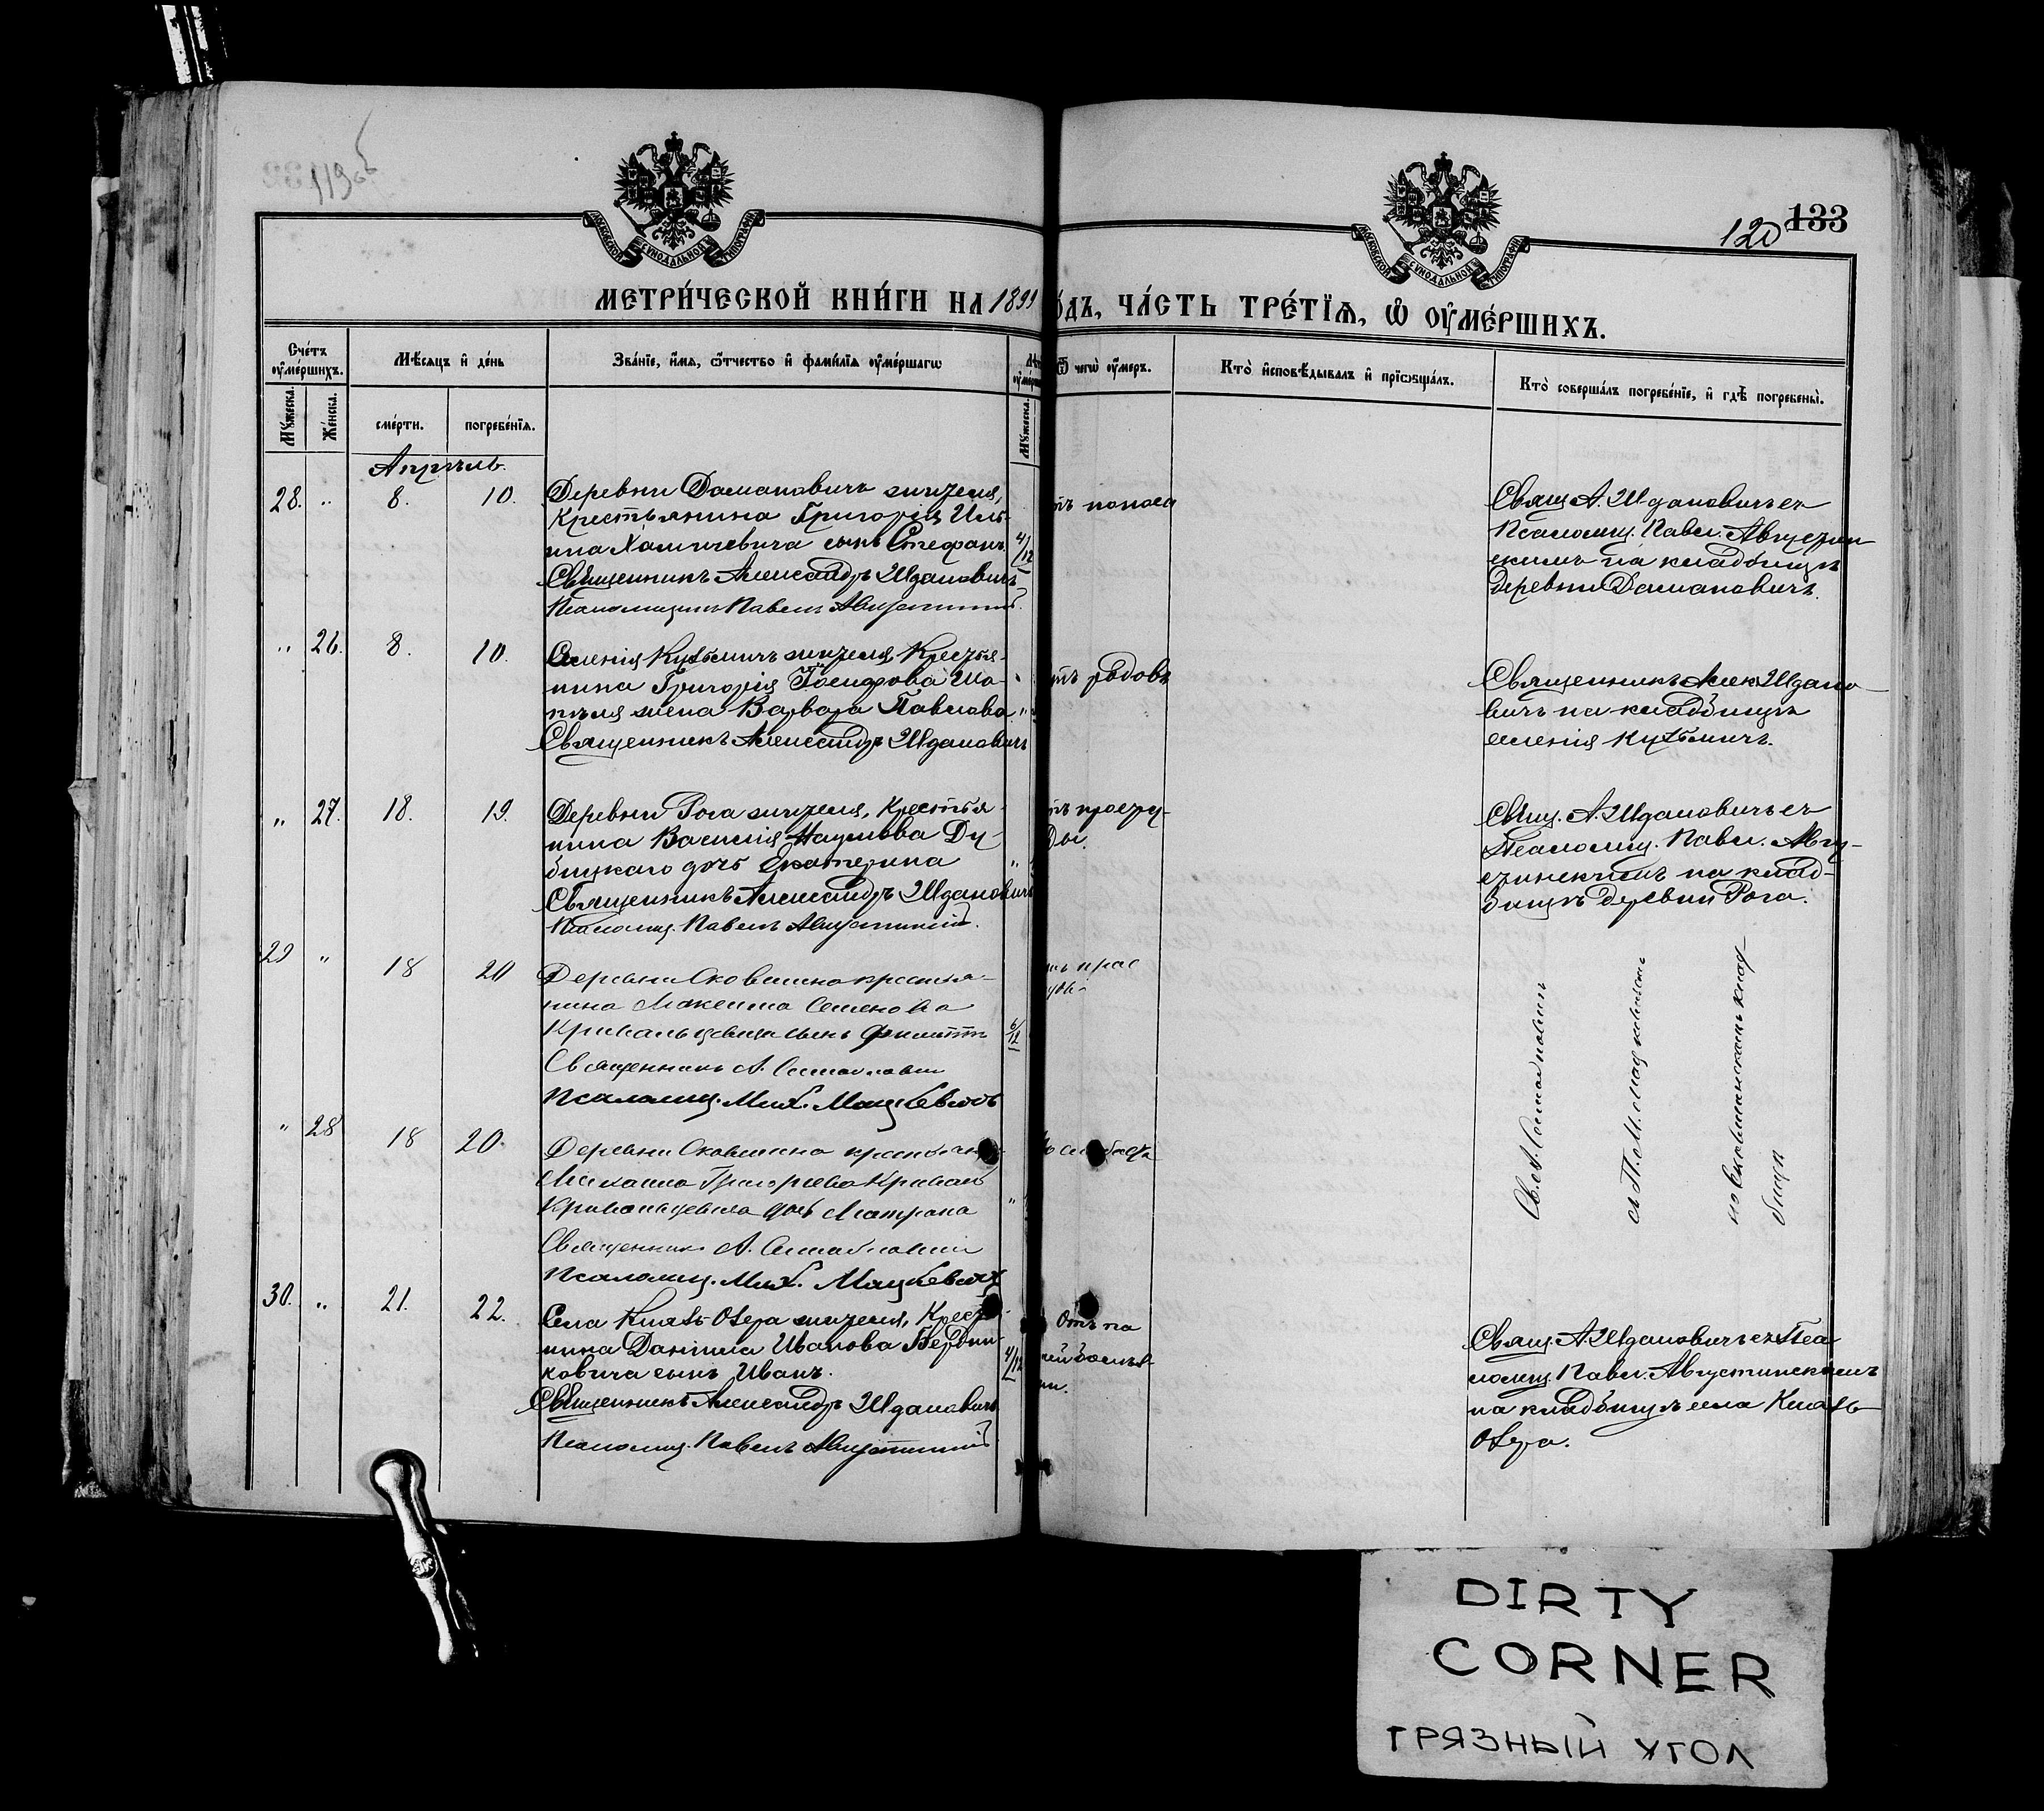 119 об
133
120
МОСКОВСКОЙ СѴНОДАЛЬНОЙ ТИПОГРАФІИ
МОСКОВСКОЙ СѴНОДАЛЬНОЙ ТИПОГРАФІИ
МЕТРИ́ЧЕСКОЙ КНИ́ГИ НА 1899 ́ОДЪ, ЧА́СТЬ ТРЕ́ТІѦ, Ѡ҆ ОУ҆МЕ́РШИХЪ.
Сче́тъ оу҆ме́ршихъ.
Мꙋ́жеска.
Же́нска.
Мѣ́сяцъ и҆ де́нь
сме́рти.
погребе́нїѧ.
Зва́нїе, и҆́мѧ, ѻ҆́тчество и҆ фами́лїѧ оу҆ме́ршагѡ
Мꙋ́жеска.
Ѿ чегѡ̀ оу҆́меръ.
Кто̀ и҆сповѣ́дывалъ и҆ прїѡбща́лъ.
Кто̀ соверша́лъ погребе́нїе, и҆ гдѣ̀ погребены̀.
Апрѣль.
28. " 8. 10.
Деревни Домановичъ жителя,
крестьянина Григорія Иль-
ина сынъ Стефанъ. 4/12
Священникъ Александръ Ждановичъ
Псаломщикъ Павелъ Августинскій.
тъ поноса
Свящ. А. Ждановичъ съ
Псаломщ. Павл. Августин
скимъ на кладбищѣ
деревни Домановичъ.
" 26. 8. 10.
Селенія Кузьмичъ жителя, Крестья-
нина Григорія Іосифова Шо-
жена Варвара Павлова
Священникъ Александръ Ждановичъ
тъ родовъ
Священникъ Алек. Ждано-
вичъ на кладбищѣ
селенія Кузьмичъ.
" 27. 18. 19.
Деревни Рога жителя, Крестья-
нина Василія Наумова Ду-
бицкаго дочь Екатерина
Священникъ Александръ Ждановичъ
Псаломщ. Павелъ Августинскій.
тъ просту-
ды.
Свящ. А. Ждановичъ съ
Псаломщ. Павл. Авгу-
стинскимъ на клад-
бищѣ деревни Рога.
29 " 18 20
Деревни Сковшина крестья-
нина Максима Семенова
Кривальцевича сынъ Филиппъ 6/12
Священникъ А.
Псаломщ. Мих. Мацкевичъ
" 28 18 20.
Деревни Сковшина крестьян
Михаила Григорьева
Кривальцевича дочь Матрона
Священникъ А.
Псаломщ. Мих. Мацкевичъ
Св. А.
съ П. М. Мацкевичемъ
на Сковшинскомъ клад-
бищѣ
30. " 21. 22.
Села Князь-Озера жителя, Крестья-
нина Даніила Иванова Вербни-
ковича сынъ Иванъ. 4/12
Священникъ Александръ Ждановичъ
Псаломщ. Павелъ Августинскій
Отъ
Свящ. А. Ждановичъ съ Пса-
ломщ. Павл. Августинскимъ
на кладбищѣ села Князь-
Озера.
DIRTY
CORNER
ГРЯЗНЫЙ УГОЛ